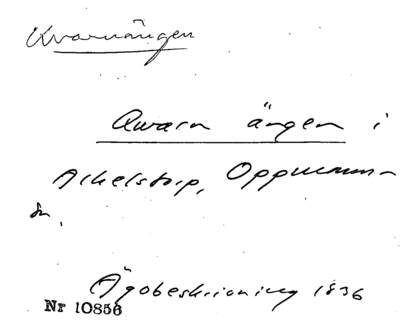 Kvarnängen
Qwarn ängen i
Arkelstorp, Oppmanna-
sn.
Ägobeskrivning 1836
Nr 10856